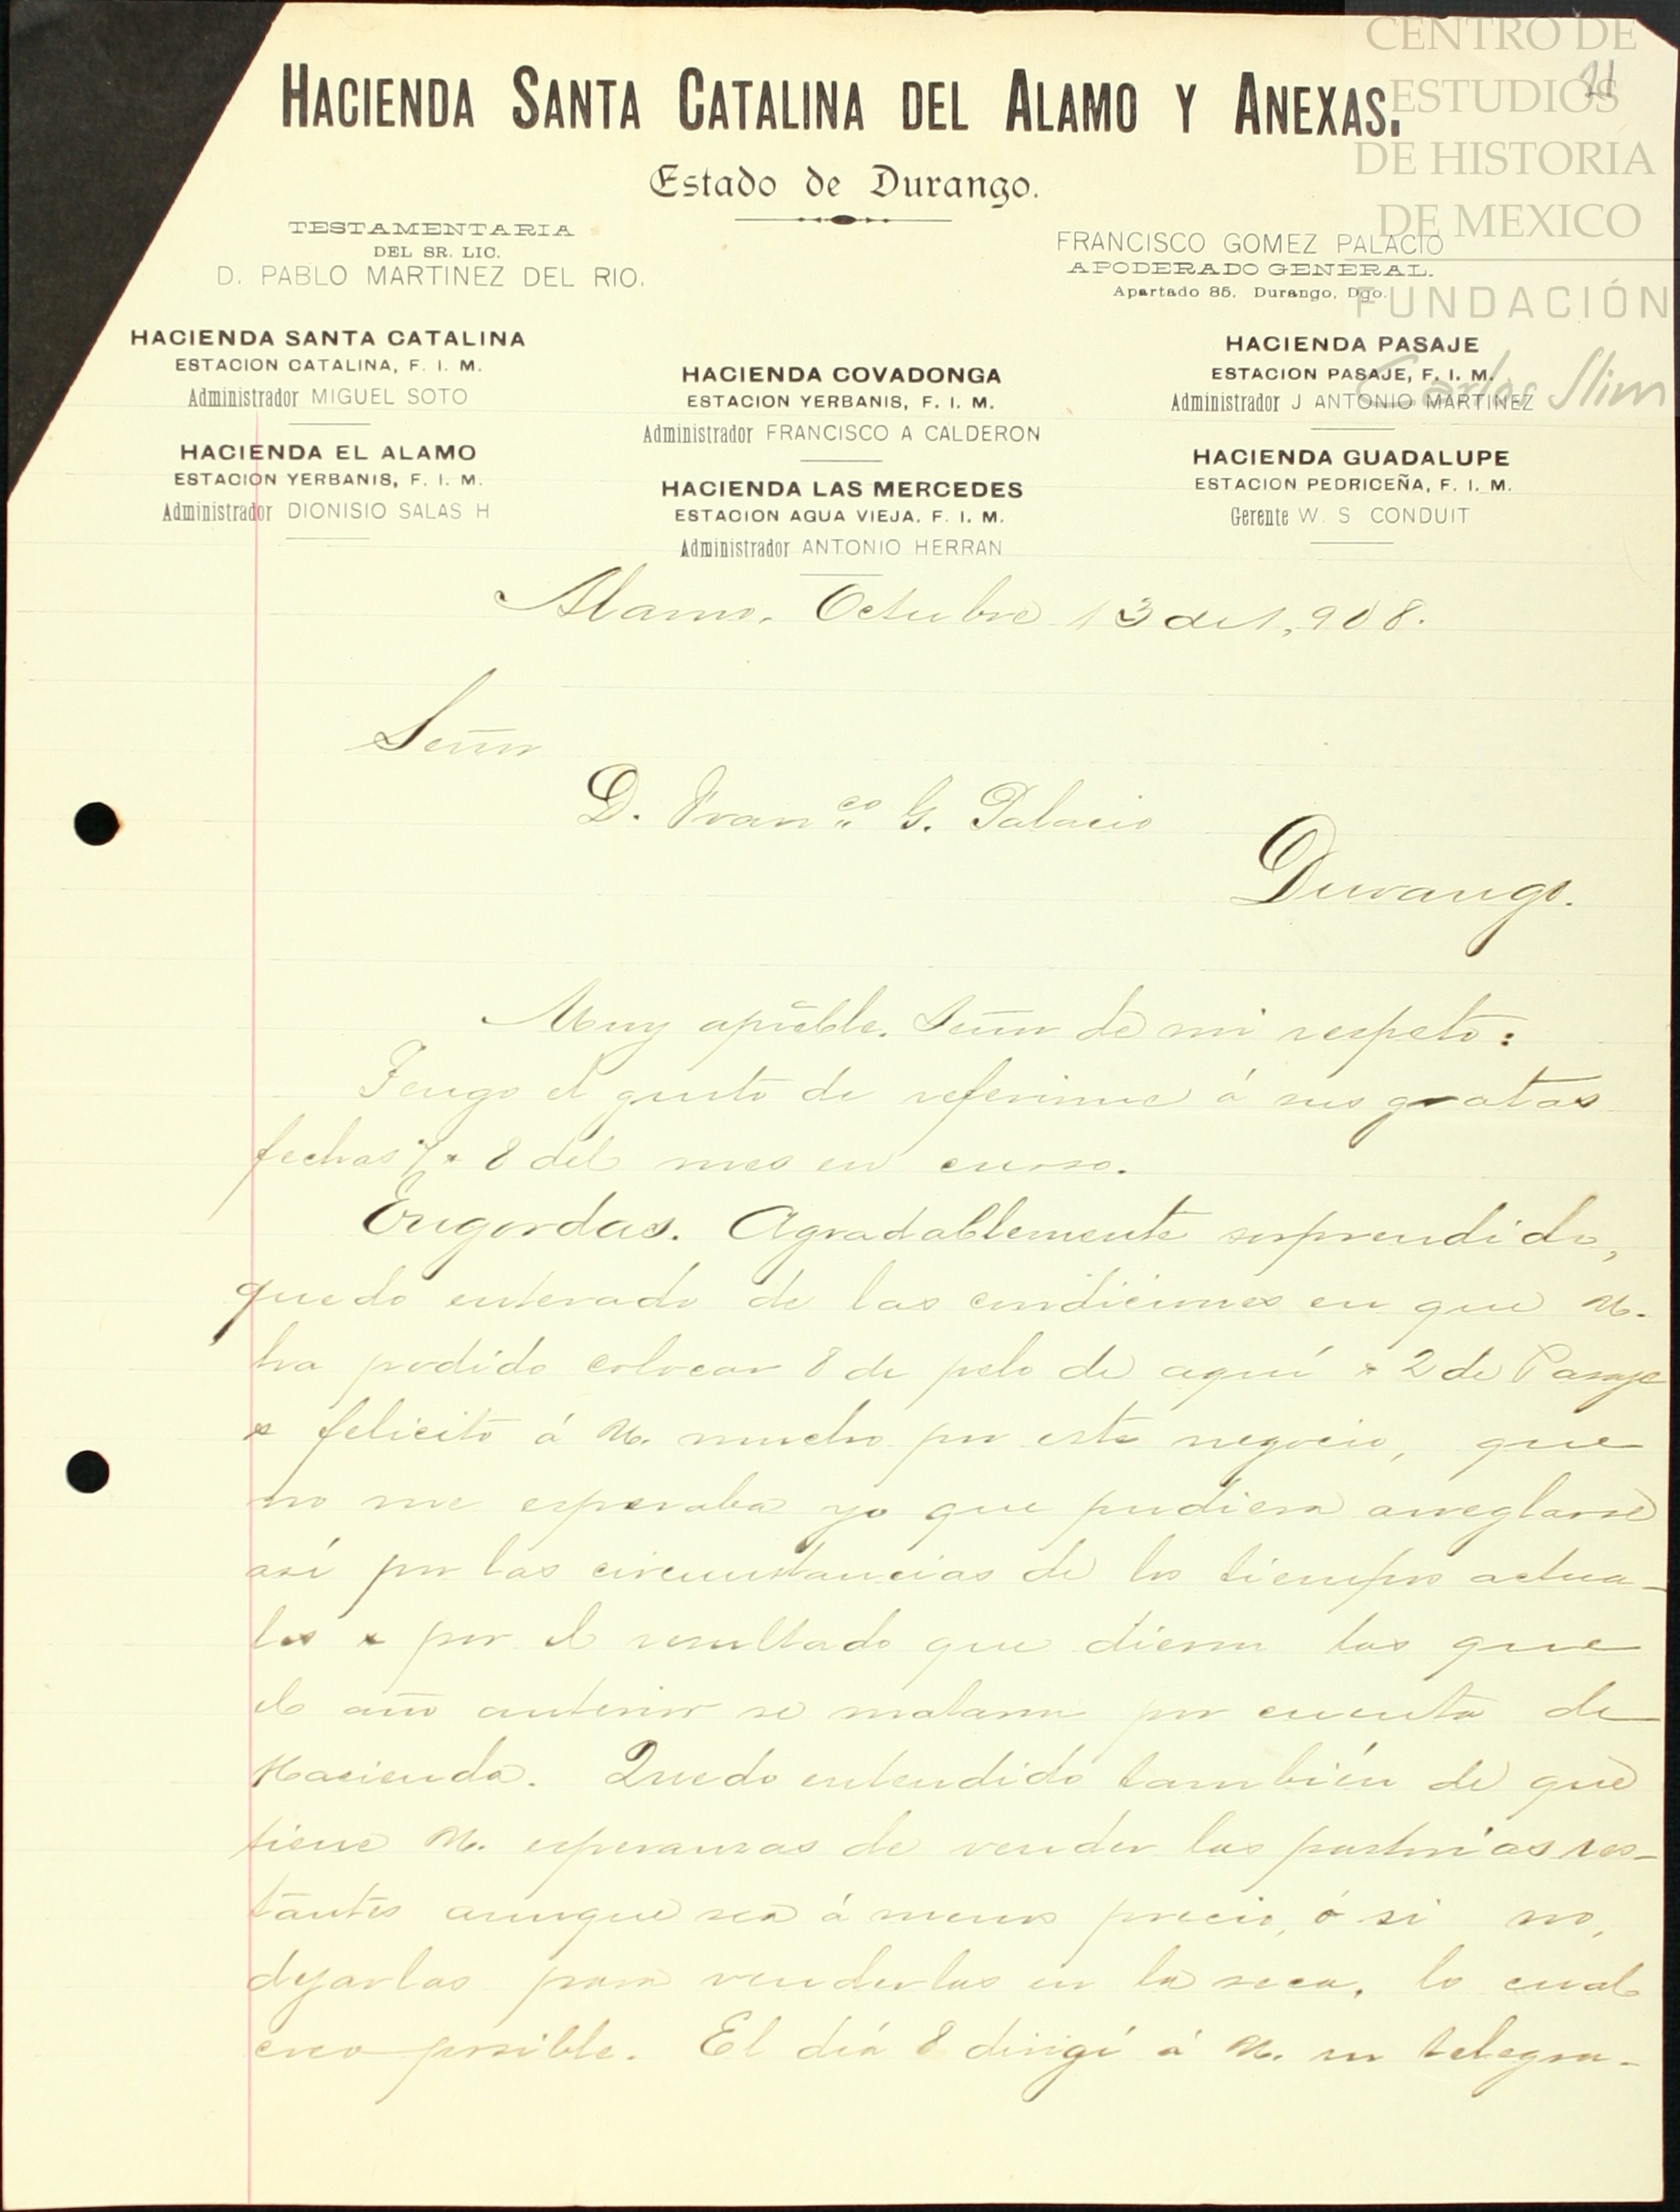 CENTRO DE
ESTUDIOS
DE HISTORIA
DE MEXICO
FUNDACIÓN
Carlos Slim
21
HACIENDA SANTA CATALINA DEL ALAMO Y ANEXAS.
Estado de Durango.
TESTAMENTARIA
DEL SR. LIC.
D. PABLO MARTINEZ DEL RIO.
FRANCISCO GOMEZ PALACIO
APODERADO GENERAL.
Apartado 85. Durango, Dgo.
HACIENDA SANTA CATALINA
ESTACION CATALINA, F. I. M.
Administrador MIGUEL SOTO
HACIENDA EL ALAMO
ESTACION YERBANIS, F. I. M.
Administrador DIONISIO SALAS H
HACIENDA COVADONGA
ESTACION YERBANIS, F. I. M.
Administrador FRANCISCO A CALDERON
HACIENDA LAS MERCEDES
ESTACION AGUA VIEJA. F. I. M.
Administrador ANTONIO HERRAN
HACIENDA PASAJE
ESTACION PASAJE, F. I. M.
Administrador J ANTONIO MARTINEZ
HACIENDA GUADALUPE
ESTACION PEDRICEÑA, F. I. M.
Gerente W. S CONDUIT
Alamo, Octubre 13 de 1,908.
Señor
D. Franco G. Palacio
Durango.
Muy apreble. Señor de mi respeto:
Tengo el gusto de referirme á sus gratas
fechas 7 y 8 del mes en curso.
Engordas. Agradablemente sorprendido,
quedo enterado de las condiciones en que U.
ha podido colocar 8 de pelo de aquí y 2 de Pasaje
y felicito á U. mucho por este negocio, que
no me esperaba yo que pudiera arreglarse
así por las circunstancias de los tiempos actua-
les y por el resultado que dieron las que
el año anterior se mataron por cuenta de
Hacienda. Quedo entendido también de que
tiene U. esperanzas de vender las partidas res-
tantes aunque sea á menos precio, ó si no,
dejarlas para venderlas en la seca, lo cual
creo posible. El día 8 dirigí á U. un telegra-